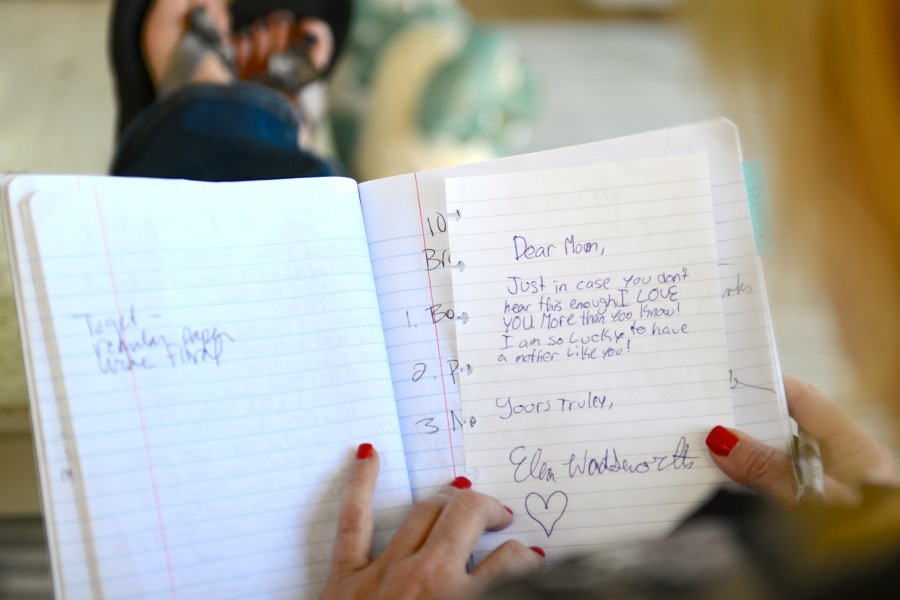 To get -
regular paper
10
1.
2.
3
Dear Mom,
Just in case you don't
hear this enough, I LOVE
YOU More than You Know!
I am so Lucky to have
a mother Like you!
Yours Truley,